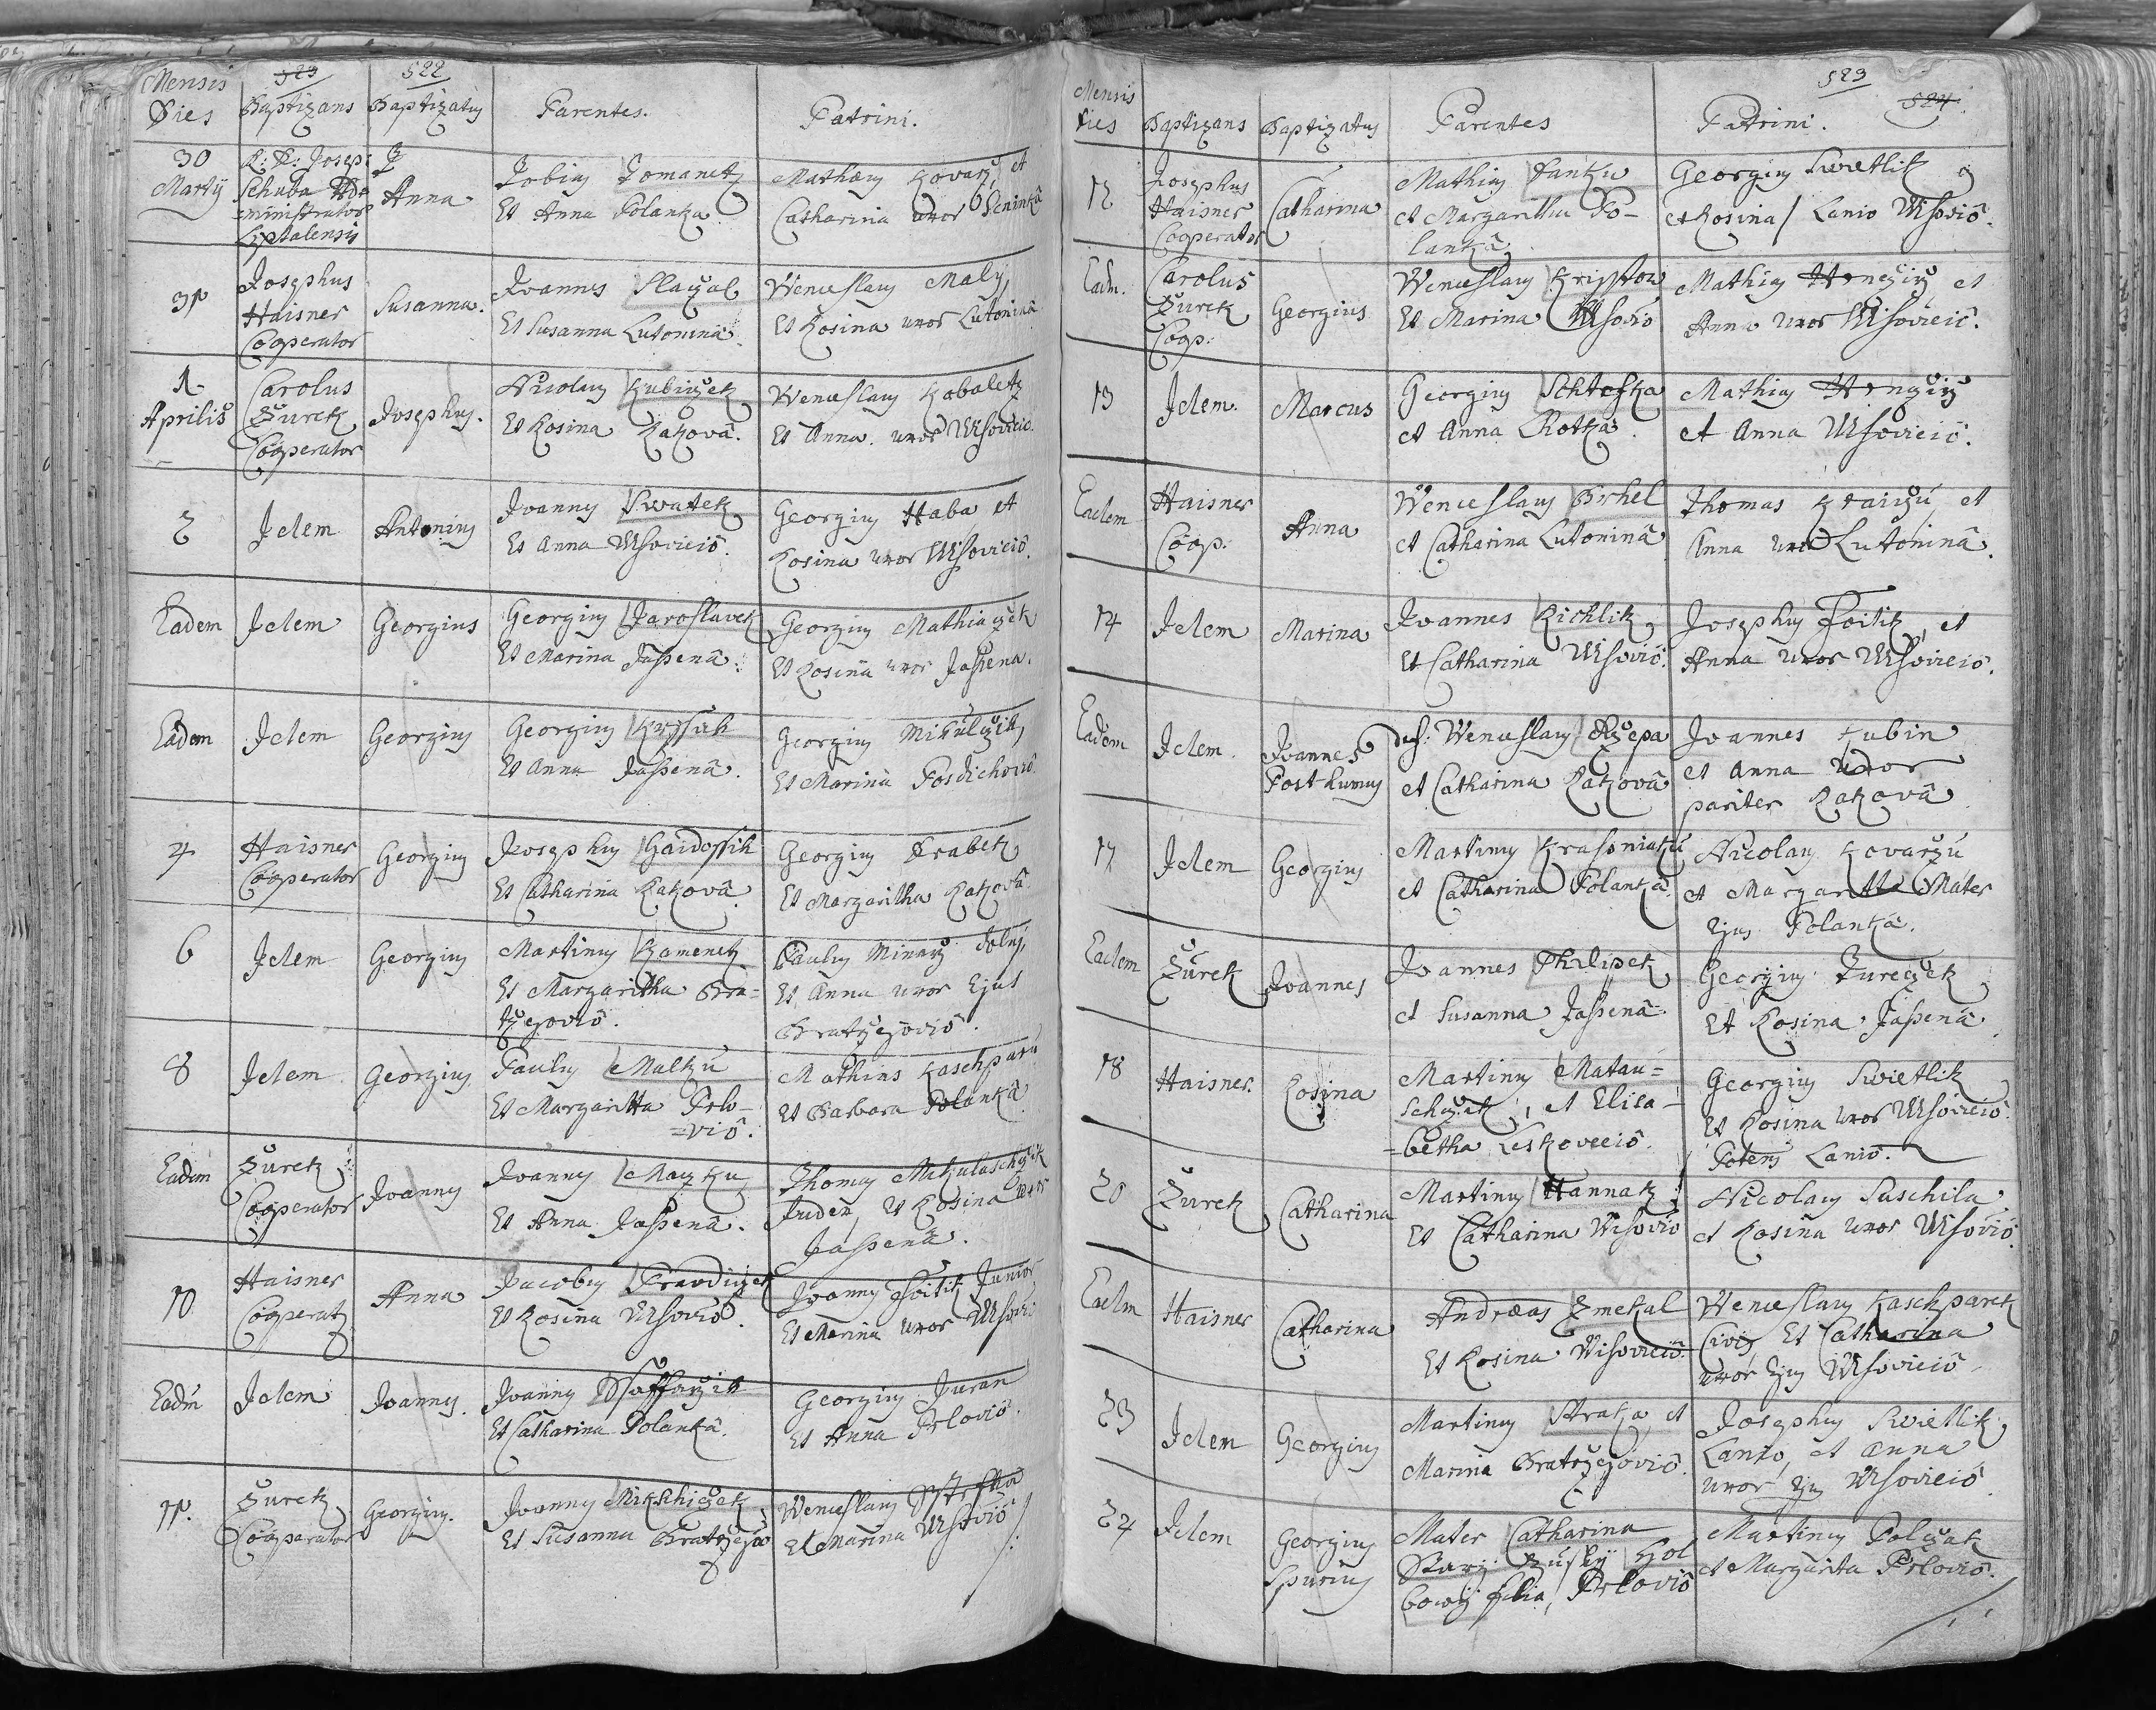 Mensis Dies
523
522
Baptizans
Baptizatus
Parentes.
Patrini.
30 Martij
R: D: Josep:
Schuba Ad-
=ministrator
Liptalensis
Anna
Tobius Tomanetz
Et Anna Polanka
Mathæus Kovarz, et
Catharina uxor Seninkâ
31
Josephus
Haisner
Cooperator
Susanna.
Joannes
Et Susanna Lutoninâ
Wenceslaus Maly,
Et Rosina uxor Lutoninâ
1
Aprilis
Carolus
Žurek
Cooperator
Josephus.
Nicolaus Kubiczek
Et Rosina Ratzovâ.
Wenceslaus Kobaletz
Et Anna uxor Wisovicio.
2
Idem
Antonius
Joannes Swatek
Et Anna Wsovicio.
Georgius Haba et
Rosina uxor Wisovicio.
Eadem
Idem
Georgius
Georgius Jaroslavek
Et Marina Jassenâ.
Georgius Mathiaczek
Et Rosina uxor Jassena.
Eadem
Idem
Georgius
Georgius
Et Anna Jassenâ.
Georgius Mikulczik
Et Marina
4
Haisner
Cooperator
Georgius
Josephus Gaidossik
Et Catharina Ratzovâ.
Georgius Drabek
Et Margaritha Ratzovâ
6
Idem
Georgius
Martinus Kamenetz
Et Margaritha Bra-
tzegovio.
Paulus Minarz
Et Anna uxor Ejus
Bratzegovio.
8
Idem
Georgius
Paulus Malku
Et Margaritta Prlo-
=viô.
Mathias Kaschparu
Et Barbara Polankâ
Eadem
Žurek
Cooperator
Joannes
Joannes
Et Anna Jassenâ.
Thomas Mikulaschzik
Judex, Et Rosina uxor
Jassenâ.
10
Haisner
Cooperat
Anna
Jacobus
Et Rosina Wsovio.
Joannes Foitik Junior
Et Marina uxor Wsovi
Eadem
Idem
Joannes.
Joannes
Et Catharina Polankâ.
Georgius Juran
Et Anna Prlovio.
11.
Žurek
Cooperator
Georgius.
Joannes Mikschiczek
Et Susanna Bratzejov
Wenceslaus
Et Marina Wsovio
Mensis Dies
Baptizans
Baptizatus
Parentes
Patrini.
523
524
12
Josephus
Haisner
Cooperator
Catharina
Mathias Janku
et Margaritha Po-
lankâ
Georgius Swietlik
et Rosina / Lanio Wisovio.
Eadm.
Carolus
Žurek
Coop:
Georgius
Wenceslaus Krisstow
Et Marina Wsovio
Mathias et
Anna uxor Wisovicio.
13
Idem.
Marcus
Georgius Schtefka
et Anna
Mathias
et Anna Wsovicio.
Eadem
Haisner
Coop:
Anna
Wenceslaus Orhel
et Catharina Lutoninâ
Thomas et
Anna uxor Lutoninâ.
14
Idem
Marina
Joannes Richlik
Et Catharina Wsovio.
Josephus Foitik, et
Anna uxor Wsovicio.
Eadem
Idem
Joannes
Posthumus
def: Wenceslaus Rzepa
et Catharina Ratzovâ
Joannes Kubin
et Anna uxor
pariter Ratzovâ
17
Idem
Georgius
Martinus
et Catharina Polankâ
Nicolaus Kovarzu
et Margaritta Mater
Ejus Polankâ.
Eadem
Žurek
Joannes
Joannes Philipek
et Susanna Jassenâ.
Georgius Jureczek
Et Rosina Jassenâ
18
Haisner.
Rosina
Martinus Matau=
schzek, et Elisa-
=betha Leskoveciô.
Georgius Swietlik
Et Rosina uxor Wsovicio.
Potens Lanio.
20
Žurek
Catharina
Martinus Hannak
Et Catharina Wisovio
Nicolaus Suschila
et Rosina uxor Wsovio.
Eadm
Haisner
Catharina
Andræas Zmekal
Et Rosina Wisovicio.
Wenceslaus Kaschparek
Civis, Et Catharina
uxor Ejus Wsovicio
23
Idem
Georgius
Martinus Straka et
Marina Bratzejovio.
Josephus Swietlik
Lanio, et Anna
uxor Ejus Wsovicio.
24
Idem
Georgius
Spurius
Mater Catharina
filia, Prlovio
Martinus Polczak
et Margarita Prlovio.